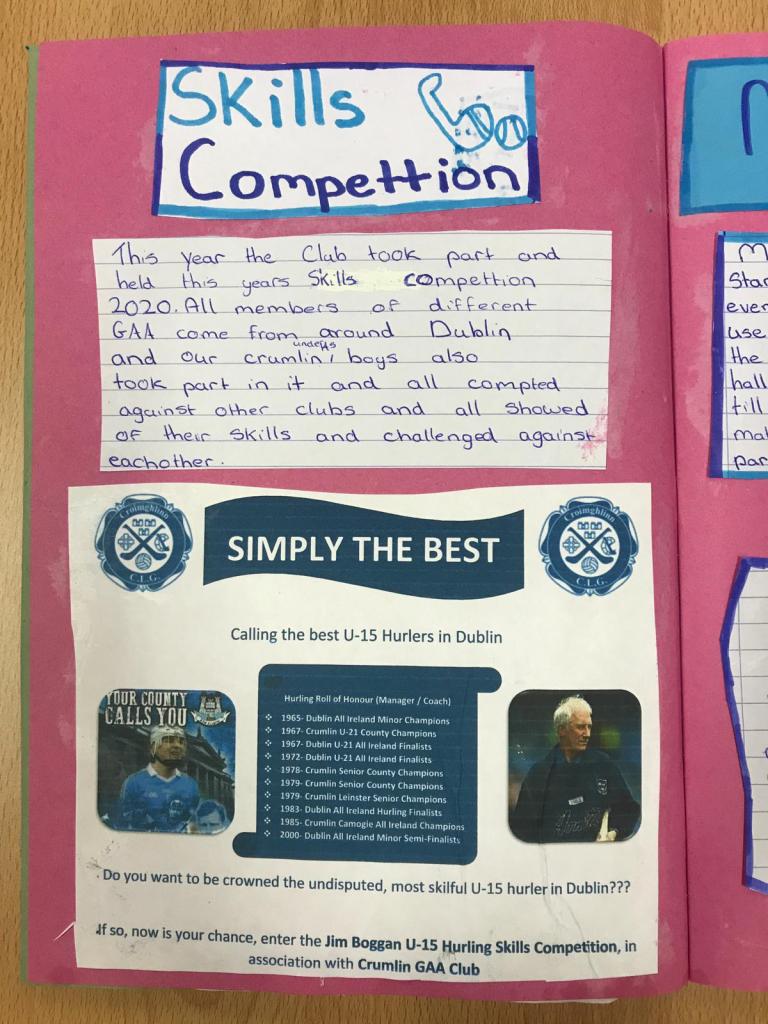 Skills
Compettion
This year the Club took part and
held this years Skills competion
2020. All members of different
GAA come from around Dublin
under 15
and our crumlin boys also
took part in it and all compted
against other clubs and all showed
of their skills and challenged against
eachother.
Croimghlinn
C.L.G.
SIMPLY THE BEST
Croimghlinn
C.L.G.
Calling the best U-15 Hurlers in Dublin
YOUR COUNTY
CALLS YOU
Hurling Roll of Honour (Manager / Coach)
❖ 1965- Dublin All Ireland Minor Champions
❖ 1967- Crumlin U-21 County Champions
❖ 1967- Dublin U-21 All Ireland Finalists
❖ 1972- Dublin U-21 All Ireland Finalists
❖ 1978- Crumlin Senior County Champions
❖ 1979- Crumlin Senior County Champions
❖ 1979- Crumlin Leinster Senior Champions
❖ 1983- Dublin All Ireland Hurling Finalists
❖ 1985- Crumlin Camogie All Ireland Champions
❖ 2000- Dublin All Ireland Minor Semi-Finalists
Do you want to be crowned the undisputed, most skilful U-15 hurler in Dublin???
If so, now is your chance, enter the Jim Boggan U-15 Hurling Skills Competition, in
association with Crumlin GAA Club
M
Star
ever
use
the
hall
till
mat
par